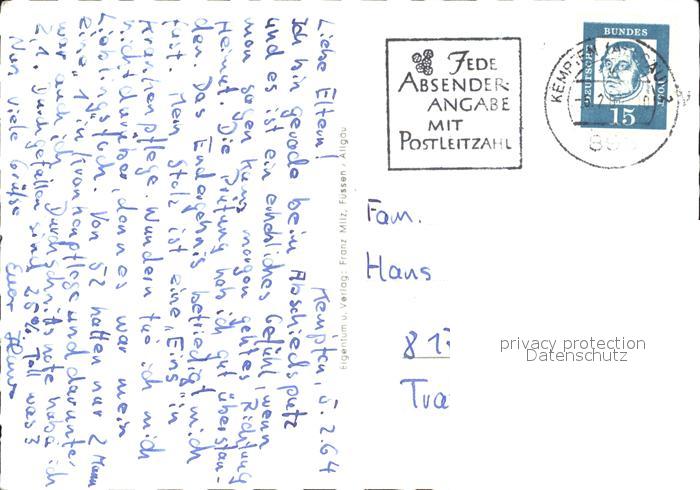 Kempten, 5.2.64
Liebe Eltern!
Ich bin gerade beim Abschiedsputz
und es ist ein erhebliches Gefühl, wenn
man sagen kann morgen geht es Richtung
Heimat. Die Prüfung hab ich gut überstan-
den. Das Endergebnis befriedigt mich
fast. Mein Stolz ist eine "Eins" in
Krankenpflege. Wundern tue ich mich
nicht darüber, denn es war mein
Lieblingsfach. Von 52 hatten nur 2 Mann
eine "1" in Krankenpflege und darunter
war auch ich. Durchschnittsnote habe ich
2,1. Durchgefallen sind 25% Toll was?
Nun viele Grüße
Euer
Eigentum u. Verlag: Franz Milz, Füssen, Allgäu
JEDE
ABSENDER-
ANGABE
MIT
POSTLEITZAHL
KEMPTEN
DEUTSCHE
BUNDES
POST
15
Fam.
Hans
81
Tra
privacy protection
Datenschutz